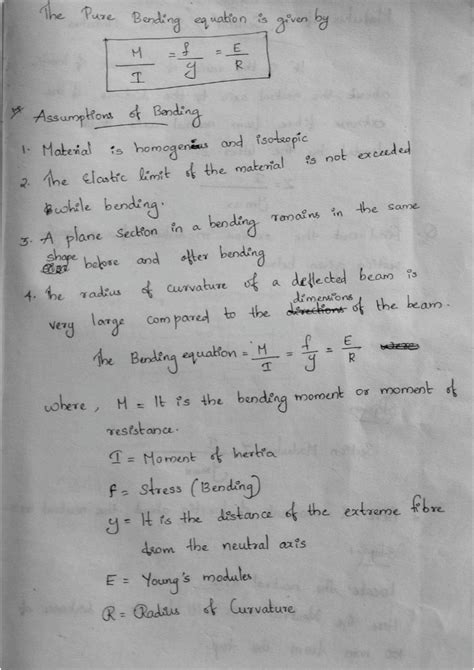 The Pure Bending equation is given by
M/I = f/y = E/R
* Assumptions of Bending
1. Material is homogeneous and isotropic
2. The Elastic limit of the material is not exceeded
while bending.
3. A plane section in a bending remains in the same
shape before and after bending
4. The radius of curvature of a deflected beam is
very large compared to the dimensions of the beam.
The Bending equation = M/I = f/y = E/R
where, M = It is the bending moment or moment of
resistance.
I = Moment of Inertia
f = Stress (Bending)
y = It is the distance of the extreme fibre
from the neutral axis
E = Young's modules
R = Radius of Curvature